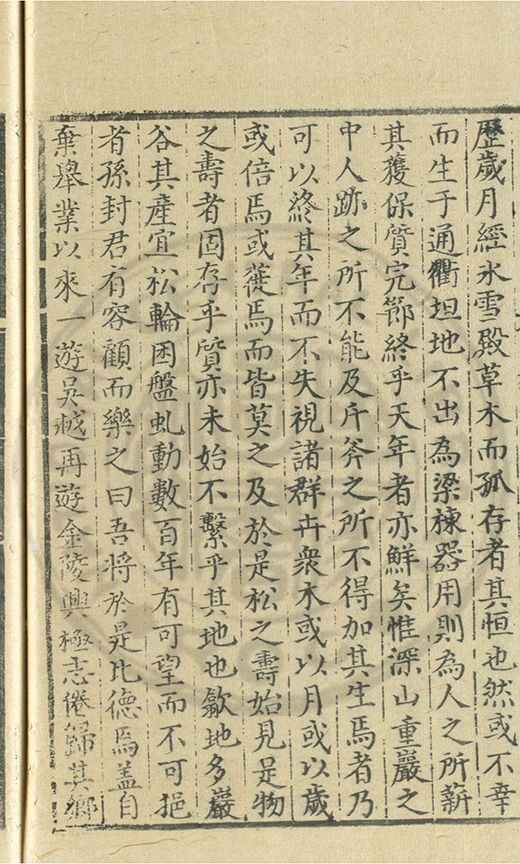 歷歲月經氷雪殿草木而孤存者其恒也然或不幸
而生于通衢坦地不出為梁棟器用則為人之所薪
其獲保質完節終乎天年者亦鮮矣惟深山重巖之
中人跡之所不能及斤斧之所不得加其生焉者乃
可以終其年而不失視諸群卉衆木或以月或以歲
或倍焉或蓰焉而皆莫之及於是松之壽始見是物
之壽者固存乎質亦未始不繫乎其地也歙地多巖
谷其產宜松輪囷盤虬動數百年有可望而不可挹
者孫封君有容顧而樂之曰吾將於是比德焉盖自
棄舉業以來一遊吳越再遊金陵興極志倦歸其鄉